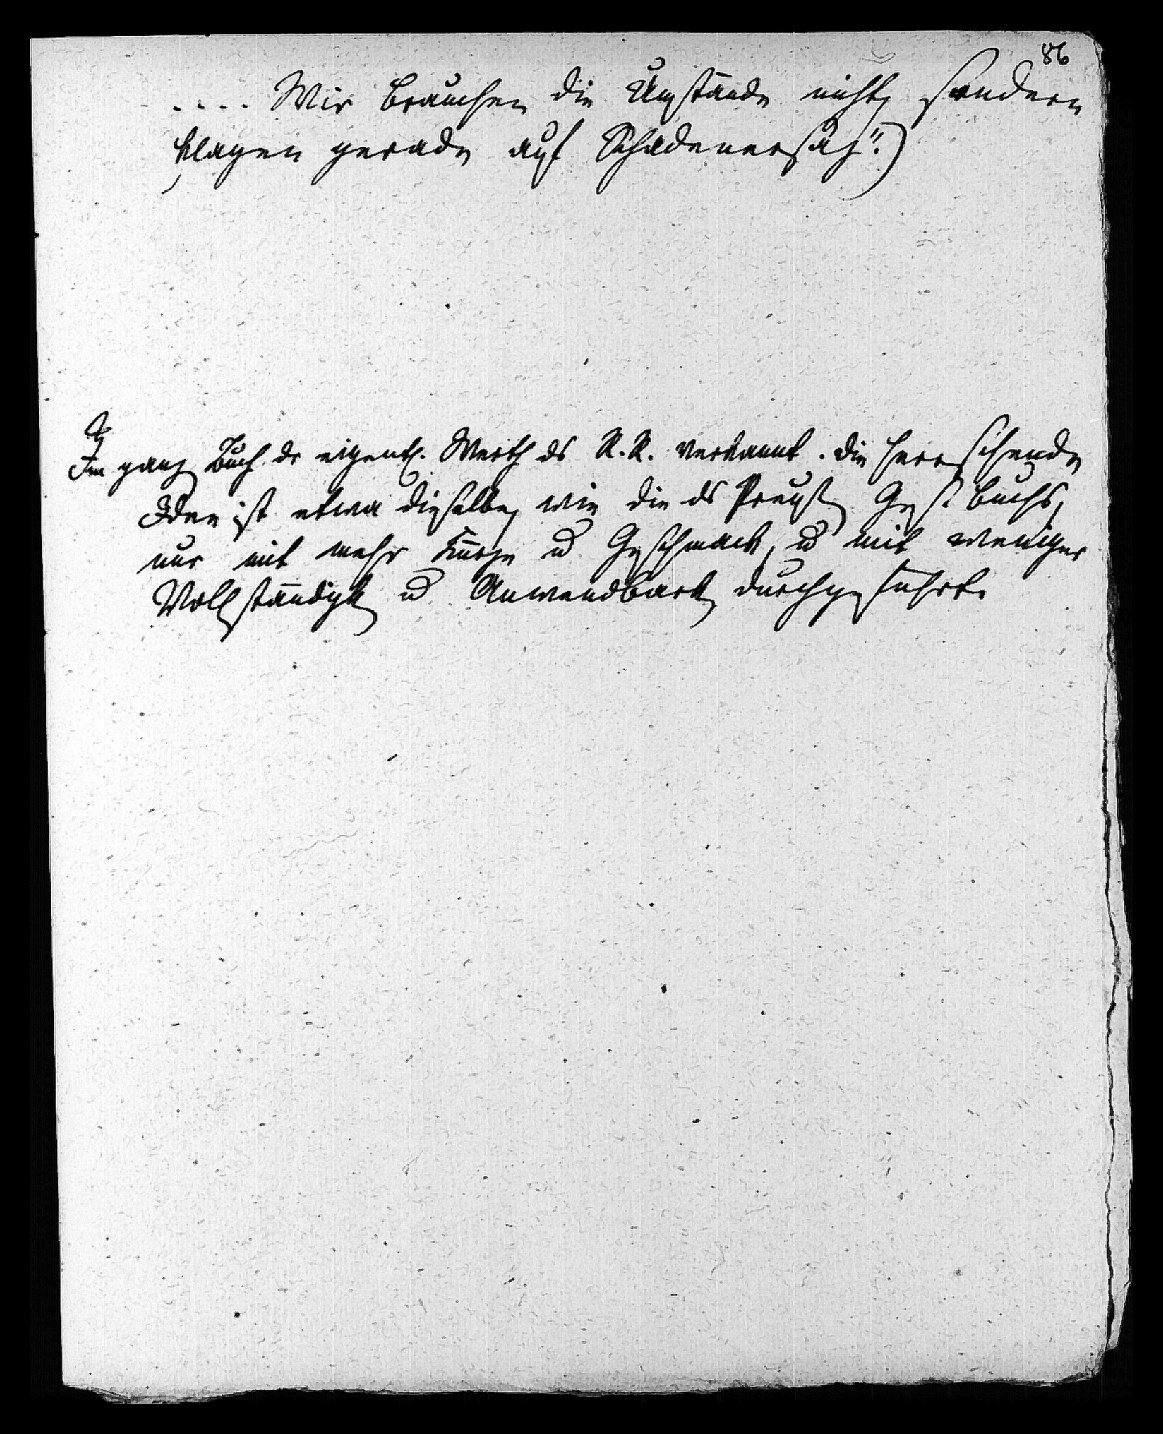 86
.... Wir brauchen die Umstände nicht, sondern
klagen gerade auf Schadenersatz".)
Im ganz. Buch dr eigentl. Werth ds R. R. verkannt. die herrschende
Idee ist etwa dieselbe, wie die ds Preuß. Gesetzbuchs,
nur mit mehr Kürze u Geschmack, u mit weniger
Vollständigk. u Anwendbark. durchgeführt.